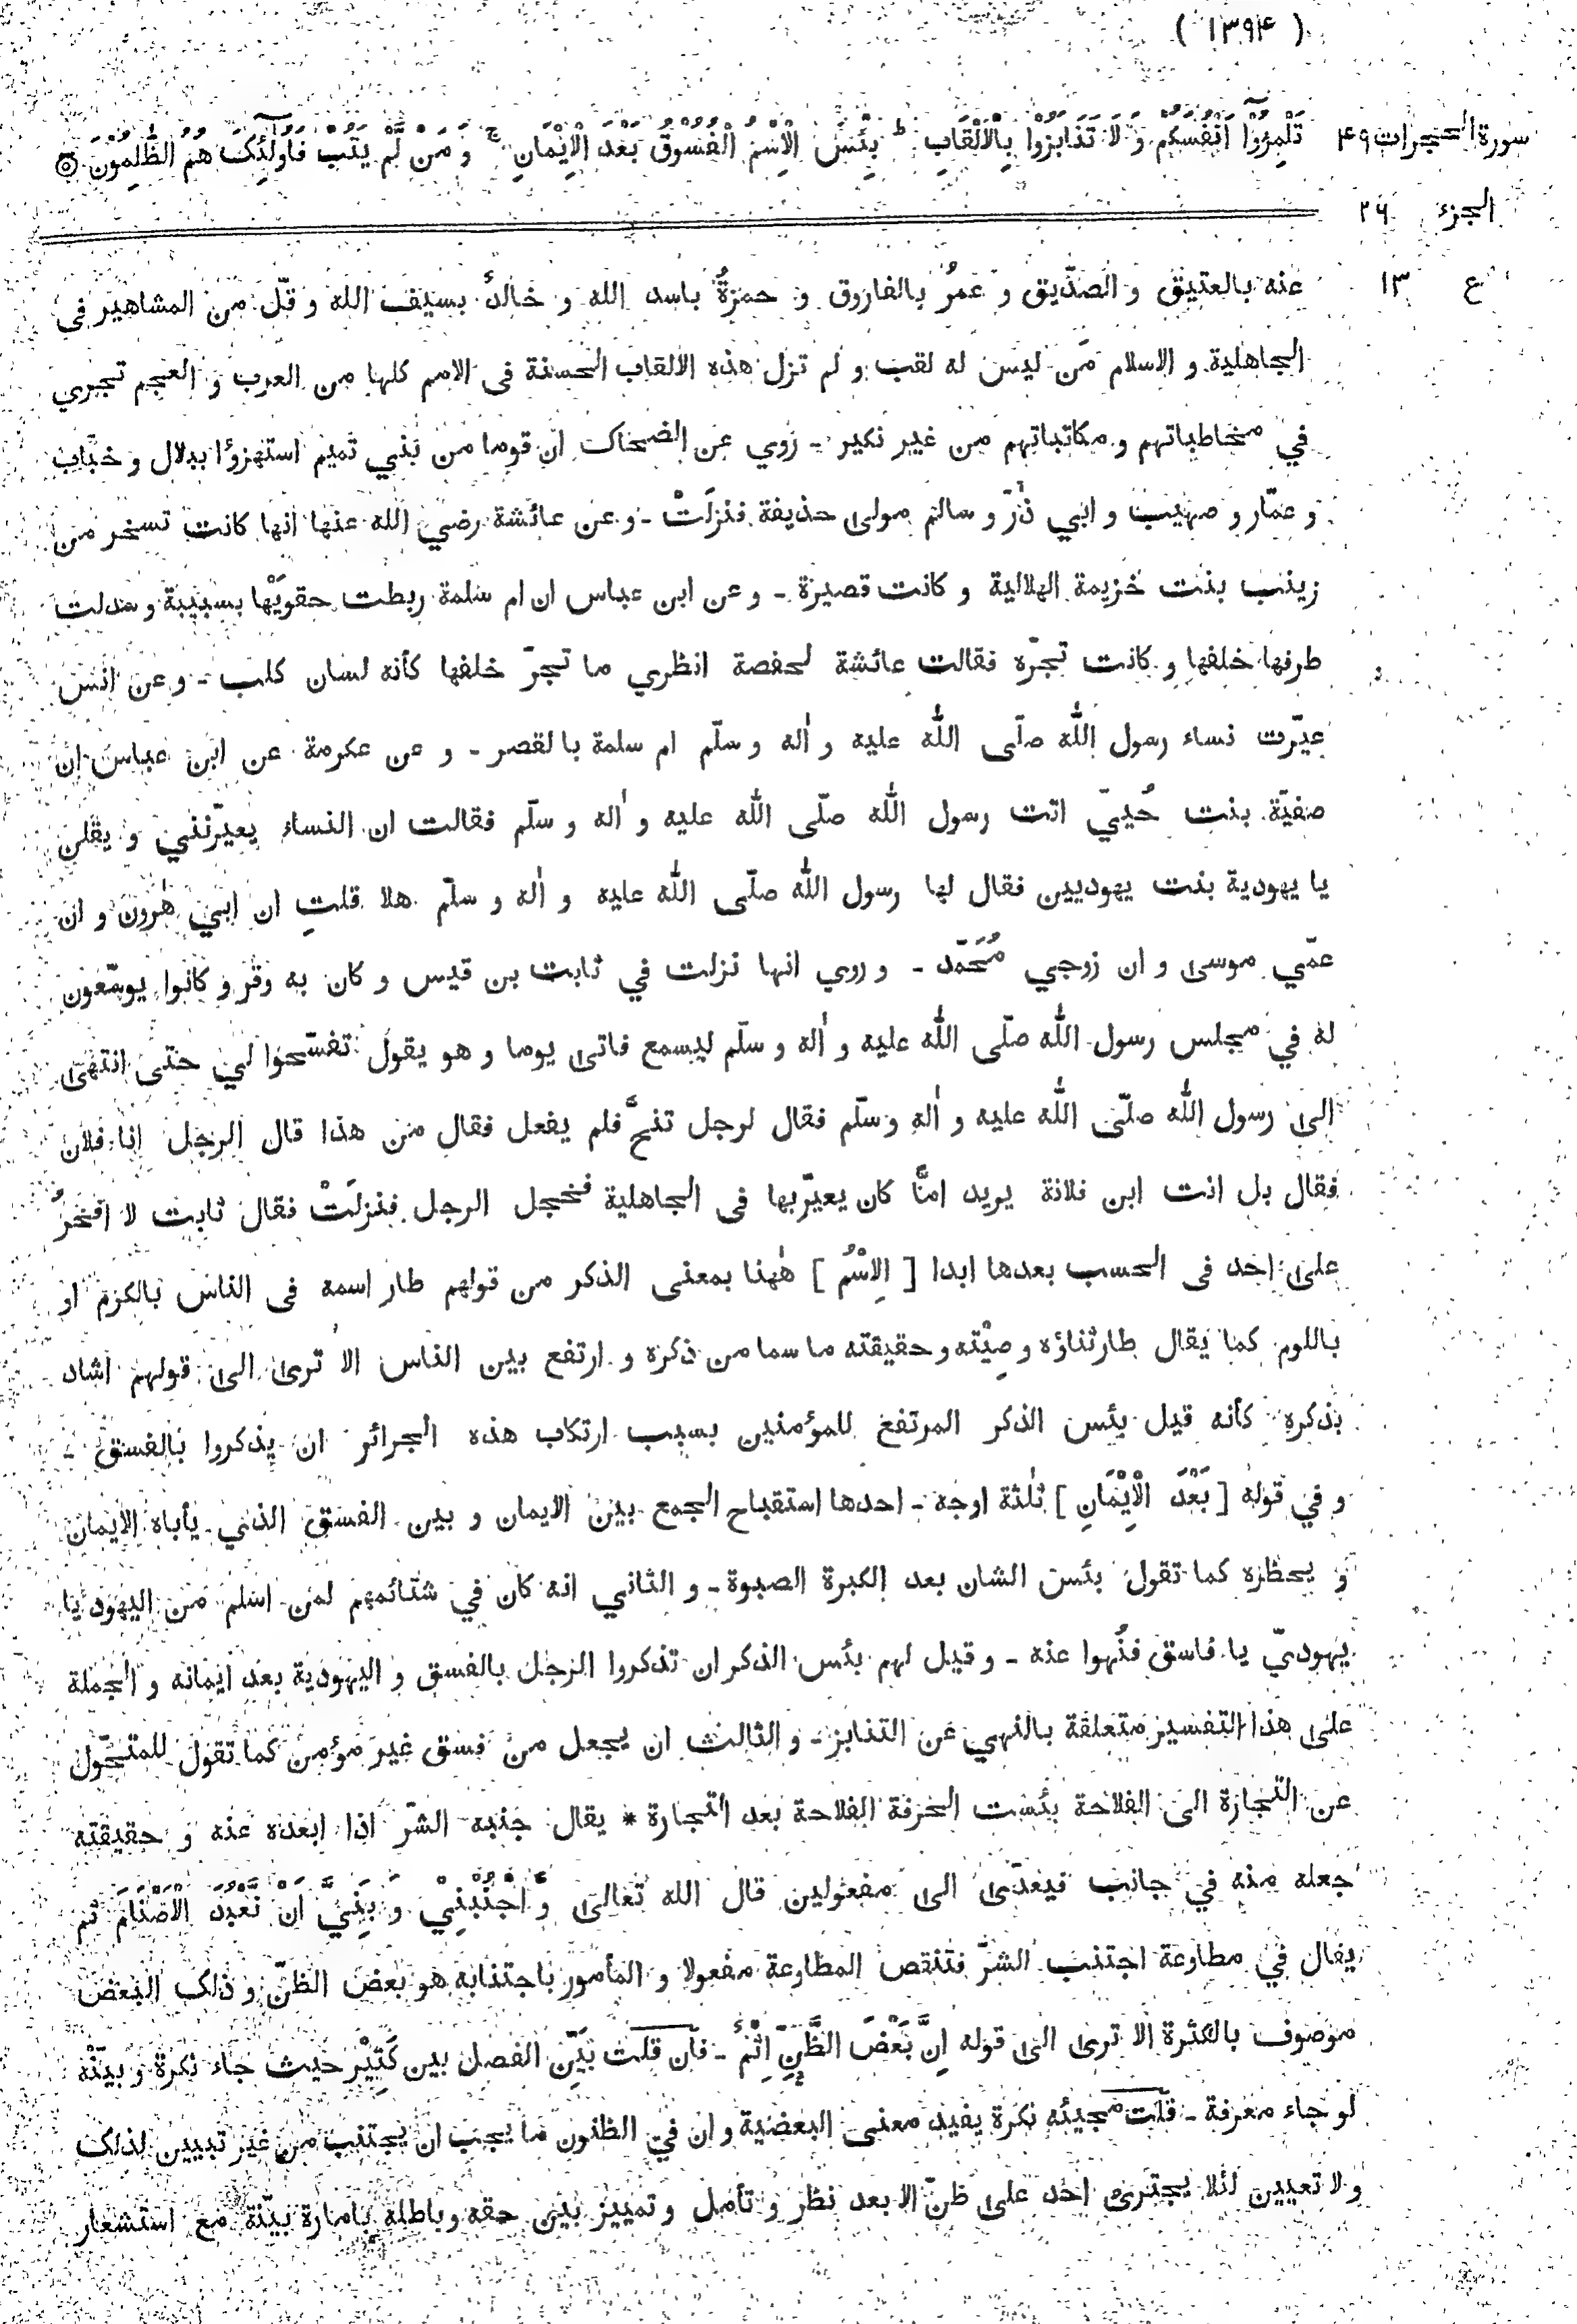 ( ١٣٩۴ )
سورة الحجرات ۴٩ تَلْمِزُوْٓا اَنْفُسَكُمْ وَ لَا تَنَابَزُوْا بِالْاَلْقَابِ ط بِئْسَ الْاِسْمُ الْفُسُوْقُ بَعْدَ الْاِيْمَانِ ج وَ مَنْ لَّمْ يَتُبْ فَاُولٰٓئِكَ هُمُ الظّٰلِمُوْنَ ۝
الجزء ٢٦
ع ١٣ عنه بالعتيق و الصدّيق و عمرُ بالفاروق و حمزةُ باسد الله و خالدُ بسيف الله و قلّ من المشاهير فى
الجاهلية و الاسلام مَن ليس له لقب و لم تزل هذه الالقاب الحسنة فى الامم كلها من العرب و العجم تجري
في مخاطباتهم و مكاتباتهم من غير نكير - روي عن الضحاك ان قوما من بني تميم استهزؤا ببلال و خبّاب
و عمّار و صهيب و ابي ذرّ و سالم مولى حذيفة فنزلَتْ - و عن عائشة رضي الله عنها انها كانت تسخر من
زينب بنت خزيمة الهلالية و كانت قصيرة - و عن ابن عباس ان ام سلمة ربطت حقوَيْها بسبيبة و سدلت
طرفها خلفها و كانت تجرّه فقالت عائشة لحفصة انظري ما تجرّ خلفها كأنه لسان كلب - و عن انس
عيّرت نساء رسول الله صلّى الله عليه و اٰله و سلّم ام سلمة بالقصر - و عن عكرمة عن ابن عباس ان
صفيّة بنت حُييّ اتت رسول الله صلّى الله عليه و اٰله و سلّم فقالت ان النساء يعيّرنني و يقلن
يا يهودية بنت يهوديين فقال لها رسول الله صلّى الله عليه و اٰله و سلّم هلا قلتِ ان ابي هٰرون و ان
عمّي موسى و ان زوجي مُحَمّد - و روي انها نزلت في ثابت بن قيس و كان به وقر و كانوا يوسّعون
له في مجلس رسول الله صلّى الله عليه و اٰله و سلّم ليسمع فاتى يوما و هو يقول تفسّحوا لي حتى انتهى
الى رسول الله صلّى الله عليه و اٰله و سلّم فقال لرجل تنحَّ فلم يفعل فقال من هذا قال الرجل انا فلان
فقال بل انت ابن فلانة يريد امًّا كان يعيّر بها فى الجاهلية فخجل الرجل فنزلَتْ فقال ثابت لا افخرُ
على احد فى الحسب بعدها ابدا [ الِاسْمُ ] هٰهنا بمعنى الذكر من قولهم طار اسمه فى الناس بالكرم او
باللوم كما يقال طار ثناؤه و صِيْته و حقيقته ما سما من ذكره و ارتفع بين الناس الا ترى الى قولهم اشاد
بذكره كأنه قيل بئس الذكر المرتفع للمؤمنين بسبب ارتكاب هذه الجرائر ان يذكروا بالفسق -
و في قوله [ بَعْدَ الْاِيْمَانِ ] ثلٰثة اوجه - احدها استقباح الجمع بين الايمان و بين الفسق الذي يأباه الايمان
و يحظره كما تقول بئس الشان بعد الكبرة الصبوة - و الثاني انه كان في شتائمهم لمن اسلم من اليهود يا
يهوديّ يا فاسق فنُهوا عنه - و قيل لهم بئس الذكر ان تذكروا الرجل بالفسق و اليهودية بعد ايمانه و الجملة
على هذا التفسير متعلقة بالنهي عن التنابز - و الثالث ان يجعل من فسق غير مؤمن كما تقول للمتحوّل
عن التجارة الى الفلاحة بئست الحرفة الفلاحة بعد التجارة * يقال جنبه الشرّ اذا ابعده عنه و حقيقته
جعله منه في جانب فيعدّى الى مفعولين قال الله تعالى وَ اجْنُبْنِيْ وَ بَنِيَّ اَنْ نَّعْبُدَ الْاَصْنَامَ ثم
يقال في مطاوعه اجتنب الشرّ فتنقص المطاوعة مفعولا و المأمور باجتنابه هو بعض الظنّ و ذلك البعض
موصوف بالكثرة الا ترى الى قوله اِنَّ بَعْضَ الظَّنِّ اِثْمٌ - فان قلت بَيّنِ الفصل بين كَثِيْر حيث جاء نكرة و بينه
لو جاء معرفة - قلت مجيئه نكرة يفيد معنى البعضية و ان في الظنون ما يجب ان يجتنب من غير تبيين لذلك
و لا تعيين لئلا يجترئ احد على ظنّ الا بعد نظر و تأمل و تمييز بين حقه و باطله بامارة بيّنة مع استشعار